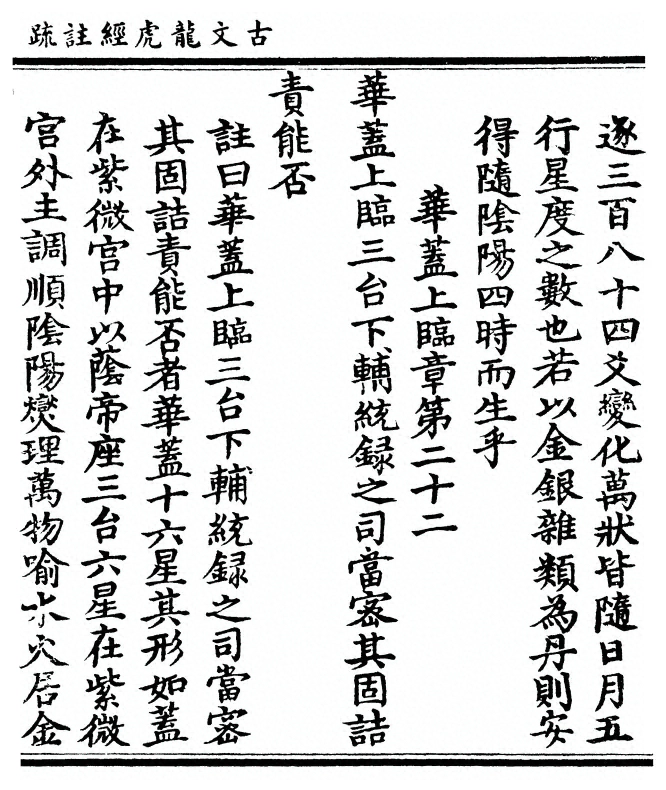 古文龍虎經註疏
逐三百八十四爻變化萬狀皆隨日月五
行星度之數也若以金銀雜類為丹則安
得隨陰陽四時而生乎
華蓋上臨章第二十二
華蓋上臨三台下輔統錄之司當密其固詰
責能否
註曰華蓋上臨三台下輔統錄之司當密
其固詰責能否者華蓋十六星其形如蓋
在紫微宮中以蔭帝座三台六星在紫微
宮外主調順陰陽燮理萬物喻水火居金